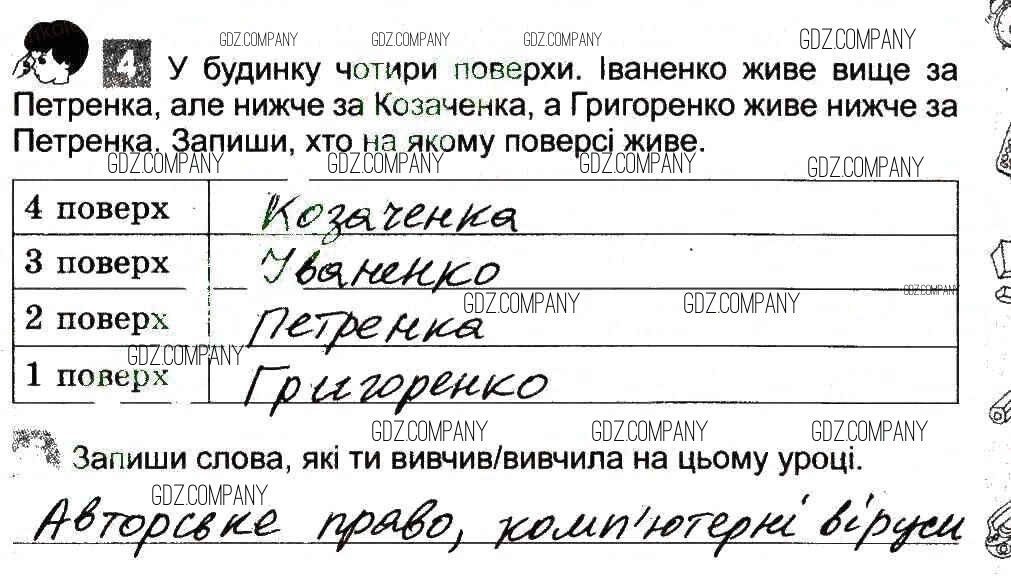 GDZ.COMPANY GDZ.COMPANY GDZ.COMPANY GDZ.COMPANY
4 У будинку чотири поверхи. Іваненко живе вище за
Петренка, але нижче за Козаченка, а Григоренко живе нижче за
Петренка. Запиши, хто на якому поверсі живе.
GDZ.COMPANY GDZ.COMPANY GDZ.COMPANY GDZ.COMPANY
4 поверх Козаченка
3 поверх Іваненко
GDZ.COMPANY GDZ.COMPANY GDZ.COMPANY
2 поверх Петренка
GDZ.COMPANY
1 поверх Григоренко
GDZ.COMPANY GDZ.COMPANY GDZ.COMPANY
Запиши слова, які ти вивчив/вивчила на цьому уроці.
GDZ.COMPANY
Авторське право, комп'ютерні віруси